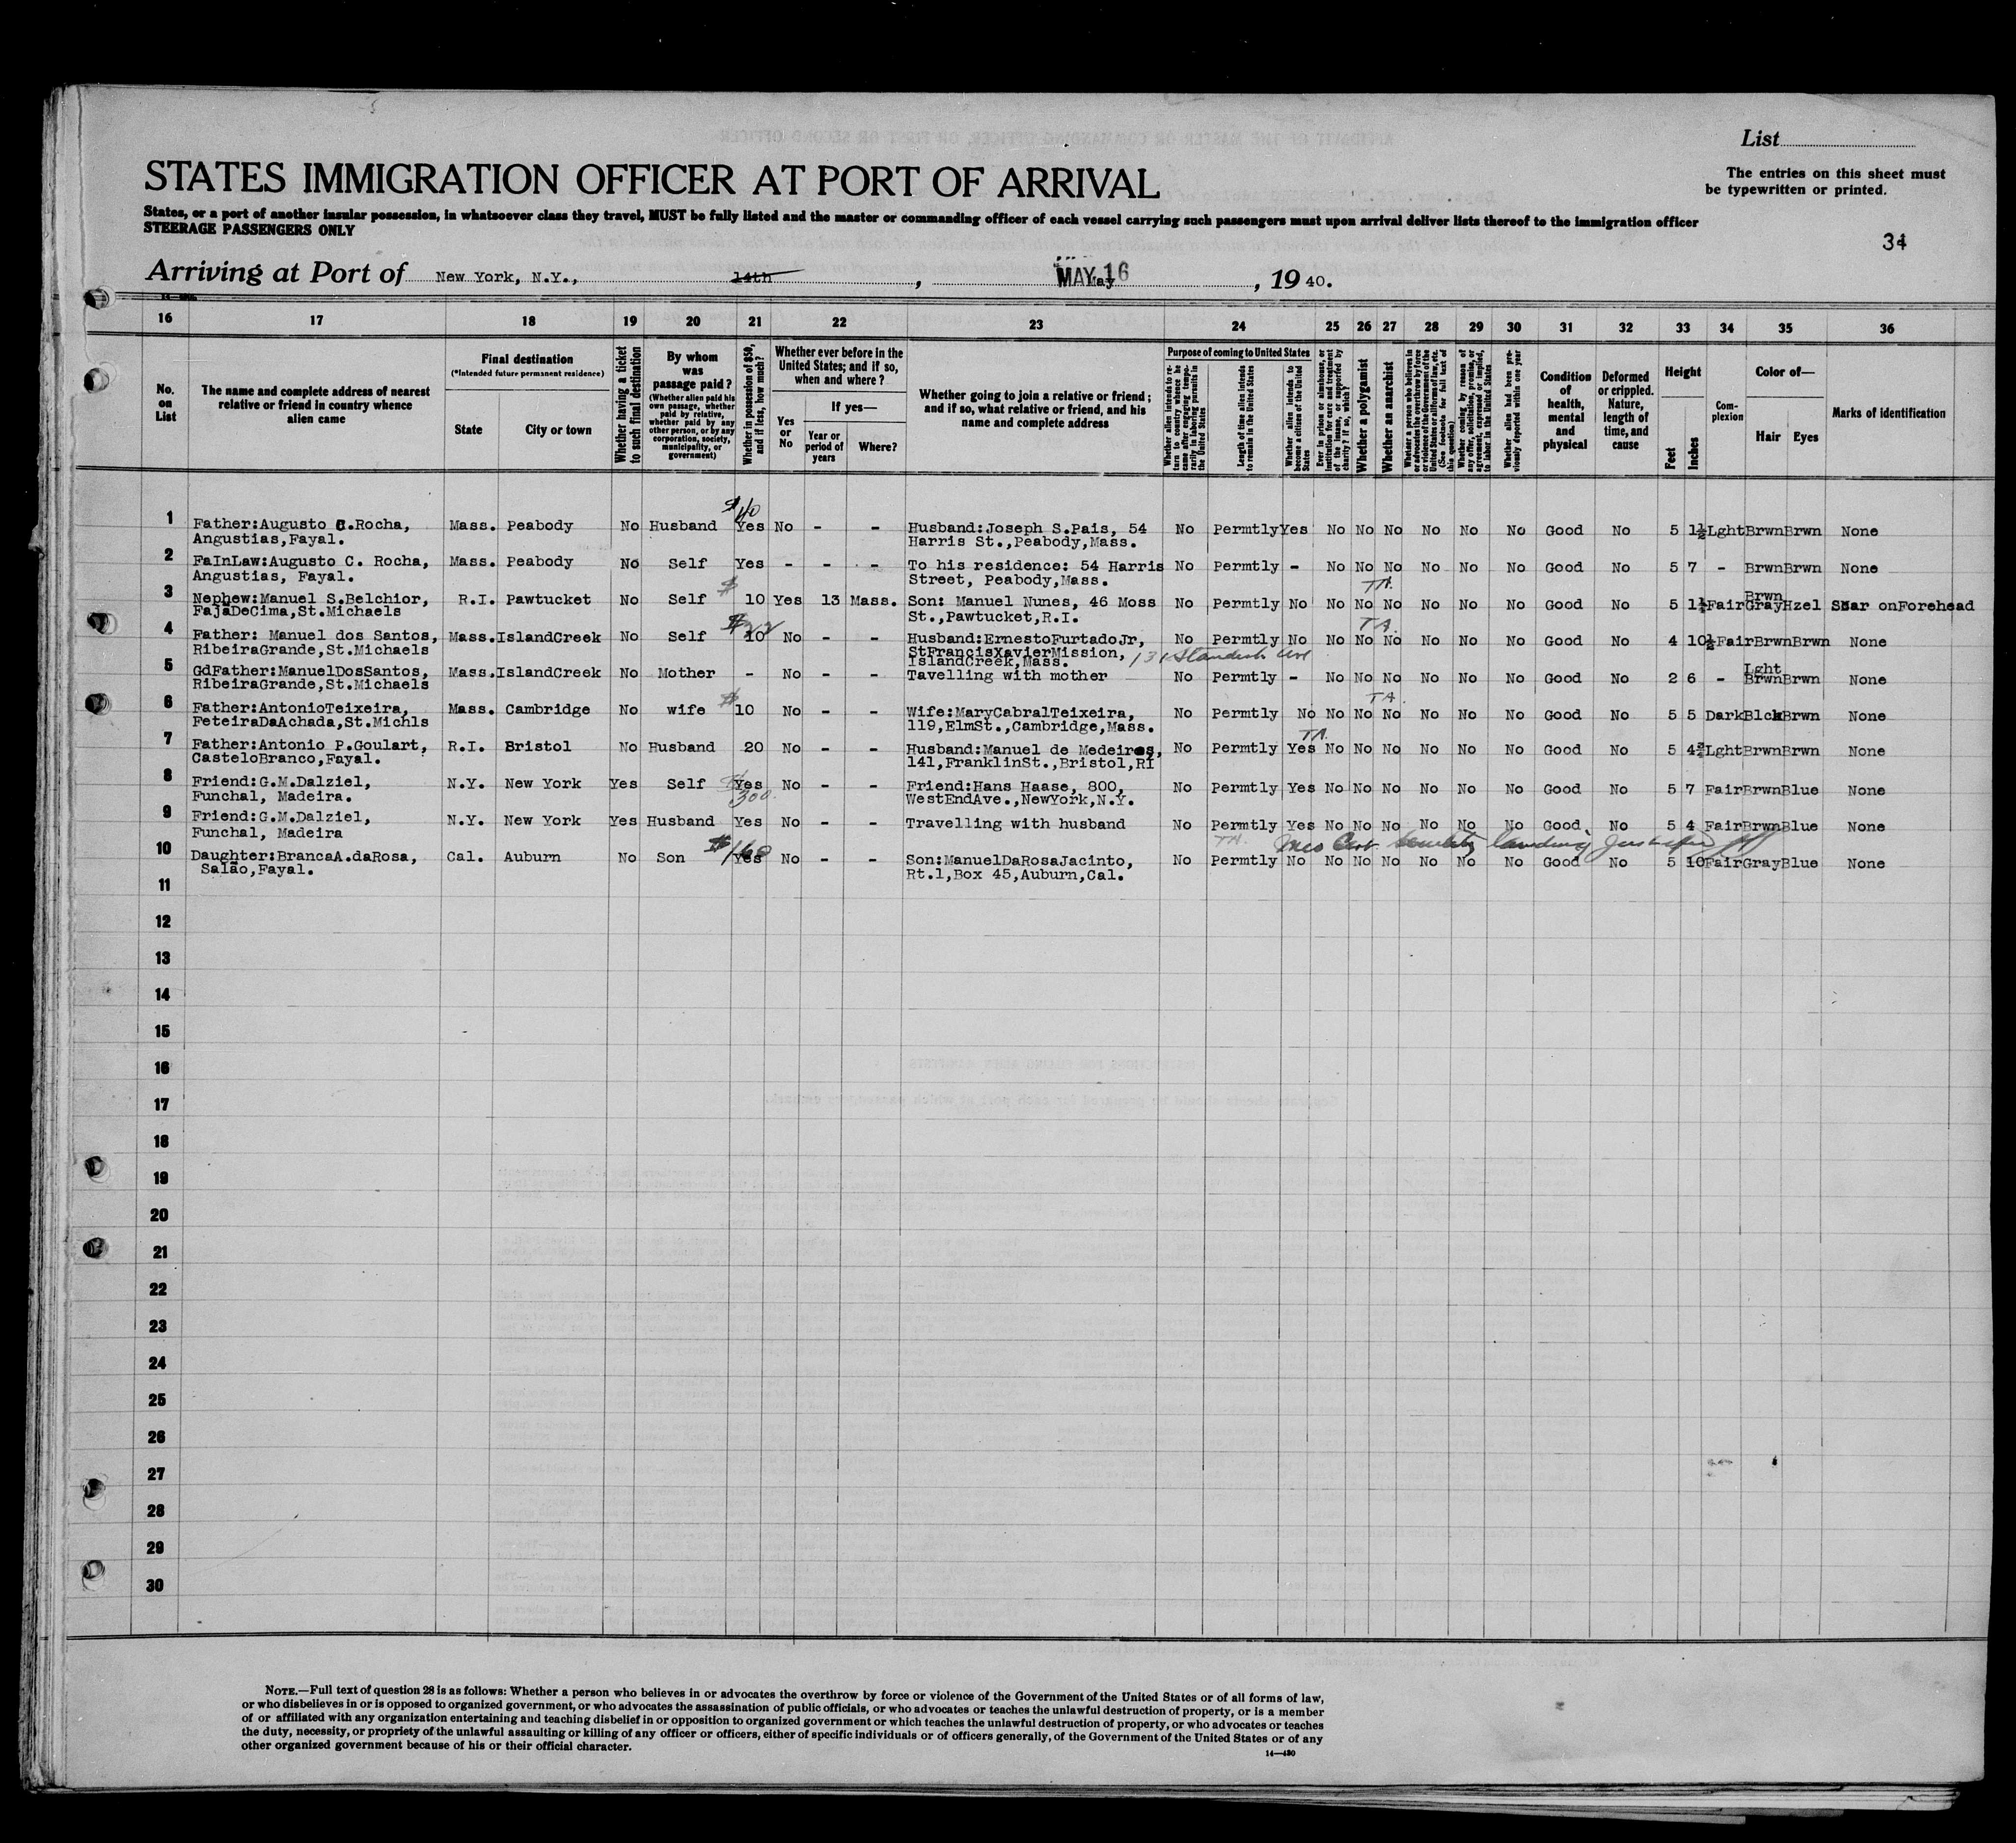 List
The entries on this sheet must
be typewritten or printed.
STATES IMMIGRATION OFFICER AT PORT OF ARRIVAL
States, or a port of another insular possession, in whatsoever class they travel, MUST be fully listed and the master or commanding officer of each vessel carrying such passengers must upon arrival deliver lists thereof to the immigration officer
STEERAGE PASSENGERS ONLY
34
Arriving at Port of New York, N.Y., 14th, MAY 16 May, 1940.
16 17 18 19 20 21 22 23 24 25 26 27 28 29 30 31 32 33 34 35 36
No. on List
The name and complete address of nearest relative or friend in country whence alien came
Final destination
(*Intended future permanent residence)
State
City or town
Whether having a ticket to such final destination
By whom was passage paid?
(Whether alien paid his own passage, whether paid by relative, whether paid by any other person, or by any corporation, society, municipality, or government)
Whether in possession of $50, and if less, how much?
Whether ever before in the United States; and if so, when and where?
Yes or No
If yes—
Year or period of years
Where?
Whether going to join a relative or friend; and if so, what relative or friend, and his name and complete address
Purpose of coming to United States
Whether alien intends to return to country whence he came after engaging temporarily in laboring pursuits in the United States
Length of time alien intends to remain in the United States
Whether alien intends to become a citizen of the United States
Ever in prison or almshouse, or institution for care and treatment of the insane, or supported by charity? If so, which?
Whether a polygamist
Whether an anarchist
Whether a person who believes in or advocates the overthrow by force or violence of the Government of the United States or all forms of law, etc. (See footnote for full text of this question)
Whether coming by reason of any offer, solicitation, promise, or agreement, expressed or implied, to labor in the United States
Whether alien had been previously deported within one year
Condition of health, mental and physical
Deformed or crippled. Nature, length of time, and cause
Height
Feet
Inches
Complexion
Color of—
Hair
Eyes
Marks of identification
$40
1 Father:Augusto C.Rocha, Mass. Peabody No Husband Yes No - - Husband:Joseph S.Pais, 54 No Permtly Yes No No No No No No Good No 5 1½ Lght Brwn Brwn None
Angustias,Fayal. Harris St.,Peabody,Mass.
2 FaInLaw:Augusto C. Rocha, Mass. Peabody No Self Yes - - - To his residence: 54 Harris No Permtly - No No No No No No Good No 5 7 - Brwn Brwn None
Angustias, Fayal. Street, Peabody,Mass.
TA. Brwn
3 Nephew:Manuel S.Belchior, R.I. Pawtucket No Self $ 10 Yes 13 Mass. Son: Manuel Nunes, 46 Moss No Permtly No No No No No No No Good No 5 1½ Fair Gray Hzel Scar onForehead
FajãDeCima,St.Michaels St.,Pawtucket,R.I.
$22 TA.
4 Father: Manuel dos Santos, Mass. IslandCreek No Self 10 No - - Husband:ErnestoFurtadoJr, No Permtly No No No No No No No Good No 4 10½ Fair Brwn Brwn None
RibeiraGrande,St.Michaels StFrancisXavierMission,
IslandCreek,Mass. 131 Standish Ave
Lght
5 GdFather:ManuelDosSantos, Mass. IslandCreek No Mother - No - - Tavelling with mother No Permtly - No No No No No No Good No 2 6 - Brwn Brwn None
RibeiraGrande,St.Michaels
TA
6 Father:AntonioTeixeira, Mass. Cambridge No wife $ 10 No - - Wife:MaryCabralTeixeira, No Permtly No No No No No No No Good No 5 5 Dark Blck Brwn None
FeteiraDaAchada,St.Michls 119,ElmSt.,Cambridge,Mass.
TA.
7 Father:Antonio P.Goulart, R.I. Bristol No Husband 20 No - - Husband:Manuel de Medeiros, No Permtly Yes No No No No No No Good No 5 4¾ Lght Brwn Brwn None
CasteloBranco,Fayal. 141,FranklinSt.,Bristol,RI
8 Friend:G.M.Dalziel, N.Y. New York Yes Self Yes No - - Friend:Hans Haase, 800, No Permtly Yes No No No No No No Good No 5 7 Fair Brwn Blue None
Funchal, Madeira. 300. WestEndAve.,NewYork,N.Y.
9 Friend:G.M.Dalziel, N.Y. New York Yes Husband Yes No - - Travelling with husband No Permtly Yes No No No No No No Good No 5 4 Fair Brwn Blue None
Funchal, Madeira
$160 TA. Med Cert
10 Daughter:BrancaA.daRosa, Cal. Auburn No Son Yes No - - Son:ManuelDaRosaJacinto, No Permtly No No No No No No No Good No 5 10 Fair Gray Blue None
Salão,Fayal. Rt.1,Box 45,Auburn,Cal.
11
12
13
14
15
16
17
18
19
20
21
22
23
24
25
26
27
28
29
30
NOTE.—Full text of question 28 is as follows: Whether a person who believes in or advocates the overthrow by force or violence of the Government of the United States or of all forms of law,
or who disbelieves in or is opposed to organized government, or who advocates the assassination of public officials, or who advocates or teaches the unlawful destruction of property, or is a member
of or affiliated with any organization entertaining and teaching disbelief in or opposition to organized government or which teaches the unlawful destruction of property, or who advocates or teaches
the duty, necessity, or propriety of the unlawful assaulting or killing of any officer or officers, either of specific individuals or of officers generally, of the Government of the United States or of any
other organized government because of his or their official character.
14—430